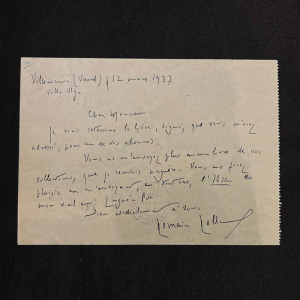 Villeneuve (Vaud) 12 mars 1937
Villa Olga
Cher Monsieur
Je vous retourne le livre, signé, que vous m'avez
adressé, pour un de vos abonnés.
Vous ne m'envoyez plus aucun livre de vos
collections, que je recevais naguère. Vous me feriez
plaisir en m'envoyant, en tout cas, l'Ibsen de
mon vieil ami Lugné-Poe.
Bien cordialement à vous
Romain Rolland